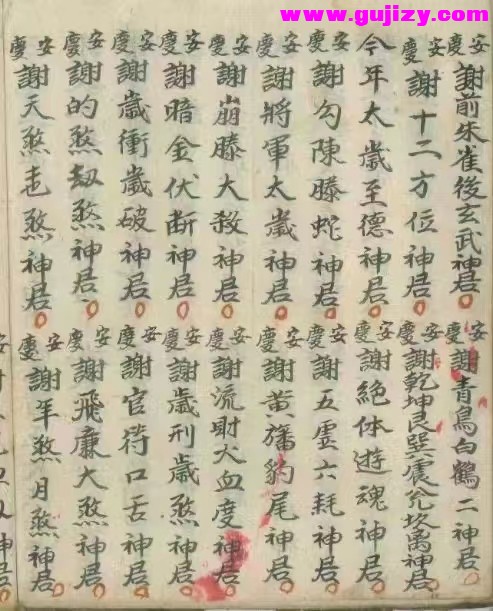 www.gujizy.com
安慶謝前朱雀後玄武神君
安慶謝青鳥白鶴二神君
安慶謝十二方位神君
安慶謝乾坤艮巽震兊坎离神君
今年太歲至德神君
安慶謝絶体遊魂神君
安慶謝勾陳螣蛇神君
安慶謝五虚六耗神君
安慶謝將軍太歲神君
安慶謝黄旛豹尾神君
安慶謝崩滕大殺神君
安慶謝流財大血度神君
安慶謝暗金伏断神君
安慶謝歲刑歲煞神君
安慶謝歲衝歲破神君
安慶謝官符口舌神君
安慶謝的煞劫煞神君
安慶謝飛廉大煞神君
安慶謝天煞煞神君
安慶謝年煞月煞神君